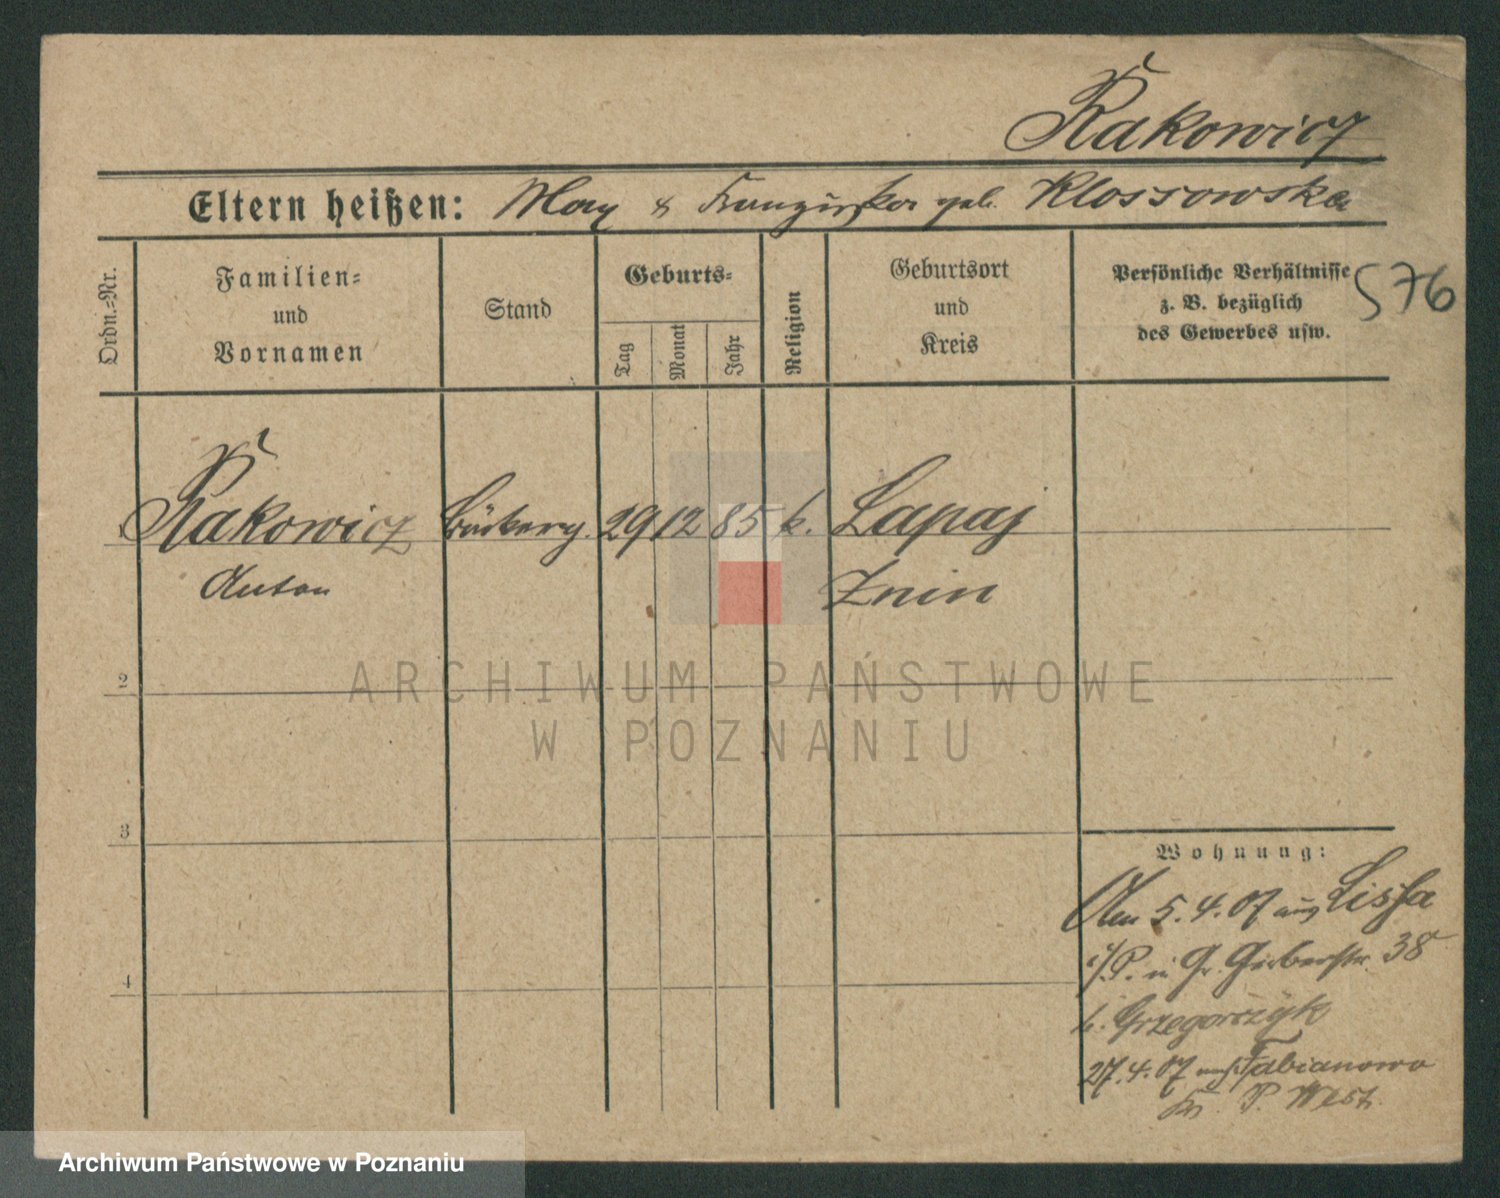 Rakowicz
Eltern heißen: Max & Franziska geb. Klossowska
Ordn.=Nr.
Familien=
und
Vornamen
Stand
Geburts=
Tag
Monat
Jahr
Religion
Geburtsort
und
Kreis
Persönliche Verhältnisse
z. B. bezüglich
des Gewerbes usw.
576
1 Rakowicz Bäckerg. 29 12 85 k. Lapaj
Anton Znin
2
ARCHIWUM PAŃSTWOWE
W POZNANIU
3
Wohnung:
Am 5.4.07 aus Lissa
i/P. in Gr. Gerberstr. 38
b. Grzegorczyk
4
27.4.07 nach Fabianowo
Kr. P. West.
Archiwum Państwowe w Poznaniu